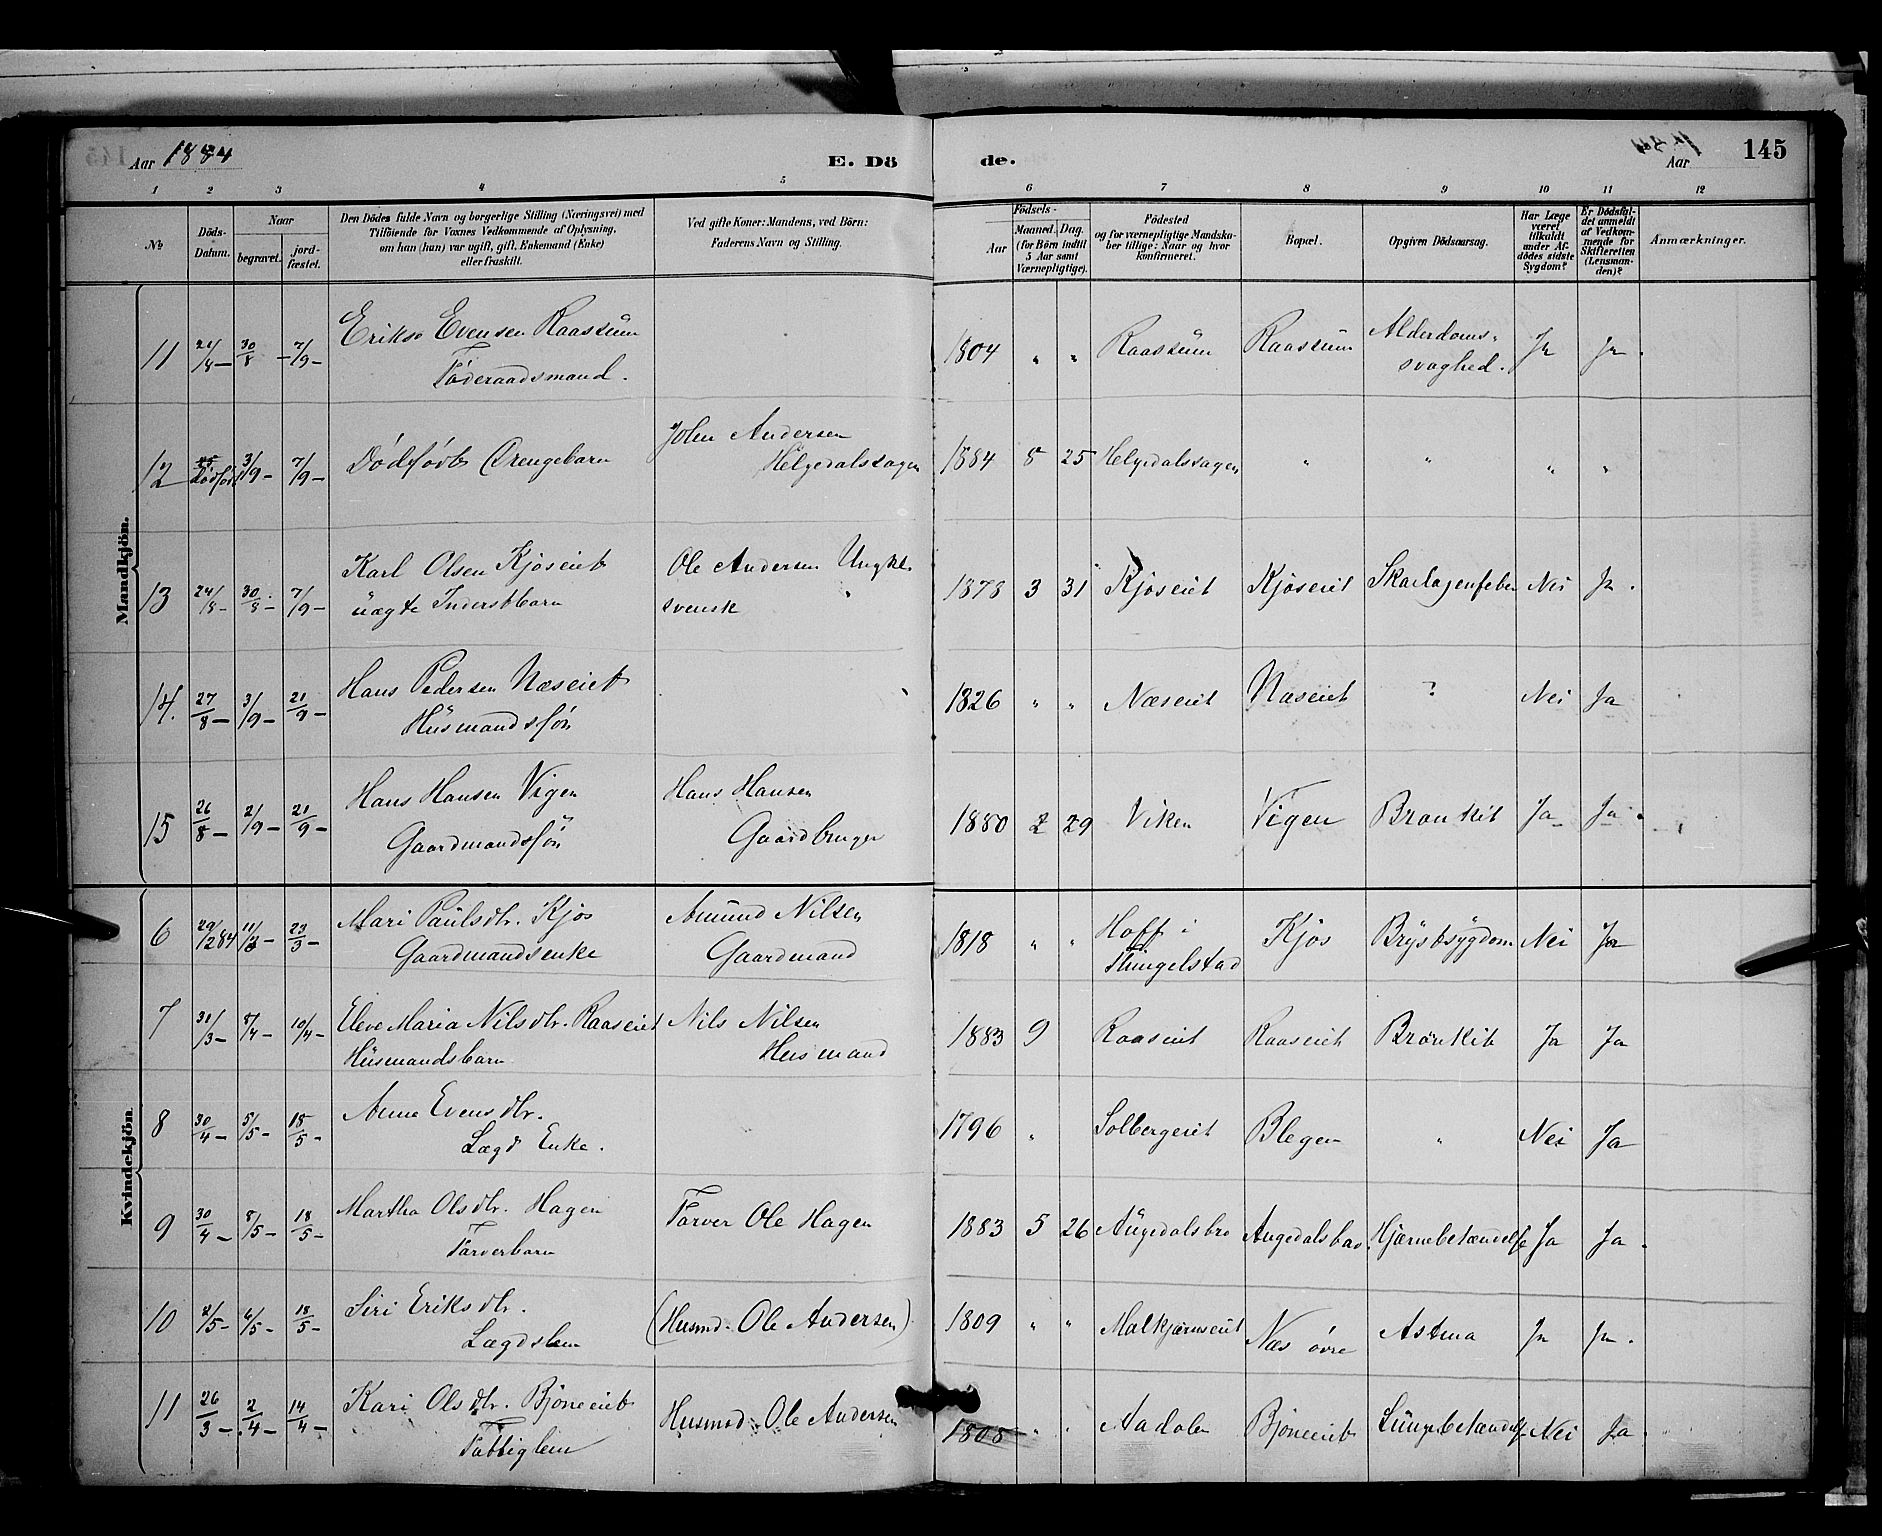 Aar 1884
E. Dö
de.
Aar
145
1 2 3 4 5 6 7 8 9 10 11 12
No
Döds-Datum.
Naar
begravet.
jordfæstet.
Den Dödes fulde Navn og borgerlige Stilling (Næringsvei) med
Tilföiende för Voxnes Vedkommende af Oplysning,
om han (hun) var ugift, gift, Enkemand (Enke)
eller fraskilt.
Ved gifte Koner: Mandens, ved Börn:
Faderens Navn og Stilling.
Födsels-
Aar
Maaned. Dag.
(for Börn indtil
5 Aar samt
Værnepligtige).
Födested
og for værnepligtige Mandskaber tillige: Naar og hvor
konfirmeret.
Bopæl.
Opgiven Dödsaarsag.
Har Læge
været
tilkaldt
under Afdödes sidste
Sygdom?
Er Dödsfaldet anmeldt
af Vedkommende for
Skifteretten
(Lensmanden)?
Anmærkninger.
Mandkjön.
11 30/8 7/9 Erikso Evensen Raassum 1804 " " Raassum Raassum Alderdoms- Ja Ja
Föderaadsmand. svaghed.
12 Dödfödt 3/9 7/9 Dödfödt Drengebarn John Andersen 1884 8 25 Helgedalshagen " " " "
Helgedalshagen
13 24/8 30/8 7/9 Karl Olsen Kjöseiet Ole Andersen Ungkl. 1878 3 31 Kjöseiet Kjöseiet Skarlagenfeber Nei Ja
uægte Inderstbarn svensk
14. 27/8 3/9 21/9 Hans Pedersen Næseiet 1826 " " Næseiet Næseiet ? Nei Ja
Husmandssön
15 26/8 2/9 21/9 Hans Hansen Vigen Hans Hansen 1880 2 29 Viken Vigen Bronkit Ja Ja
Gaardmandssön Gaardbruger
Kvindekjön.
6 29/2 84 11/3 23/3 Mari Paulsdtr. Kjös Amund Nilsen 1818 " " Hoff i Kjös Brystsygdom Nei Ja
Gaardmandsenke Gaardmand Tingelstad
7 31/3 8/4 10/4 Eleve Maria Nilsdtr. Raaseiet Nils Nilsen 1883 9 Raaseiet Raaseiet Bronkit Ja Ja
Husmandsbarn Husmand
8 30/4 5/5 18/5 Anne Evensdtr. 1796 " Solbergeiet Blegen " Nei Ja
Lægd Enke.
9 30/4 8/5 18/5 Martha Olsdtr. Hagen Farver Ole Hagen 1883 5 26 Augedalsbro Augedalsbro Hjærnebetændelse Ja Ja
Farverbarn
10 2/5 6/5 18/5 Siri Eriksdtr. (Husmd. Ole Andersen) 1809 " " Malkjærnseiet Næs övre Astma Ja Ja
Lægdslem
11 26/3 2/4 14/4 Kari Olsdtr. Bjöneeiet Husmd. Ole Andersen 1808 " " Aadalen Bjöneeiet Lungebetændelse Nei Ja
Fattiglem